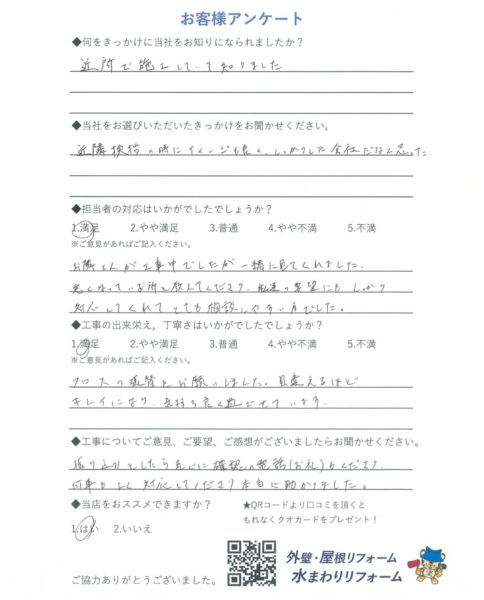 お客様アンケート
◆何をきっかけに当社をお知りになられましたか？
近所で施工していて知りました
◆当社をお選びいただいたきっかけをお聞かせください。
近隣挨拶の時にイメージも良く、しっかりした会社だなと思った
◆担当者の対応はいかがでしたでしょうか？
1.満足 2.やや満足 3.普通 4.やや不満 5.不満
※ご意見があればご記入ください。
お隣さんが工事中でしたが一緒に見てくれました。
悪くなっている所を教えてくださり、私達の要望にもしっかり
対応してくれてとても相談しやすい方でした。
◆工事の出来栄え、丁寧さはいかがでしたでしょうか？
1.満足 2.やや満足 3.普通 4.やや不満 5.不満
※ご意見があればご記入ください。
クロスの張替をお願いしました。見違えるほど
キレイになり、気持ち良く過ごせています。
◆工事についてご意見、ご要望、ご感想がございましたらお聞かせください。
振り込みをしたらすぐに確認の電話(お礼)もくださり
何事もよく対応してくださり本当に助かりました。
◆当店をおススメできますか？
1.はい 2.いいえ
★QRコードより口コミを頂くと
もれなくクオカードをプレゼント！
ご協力ありがとうございました。
外壁・屋根リフォーム
水まわりリフォーム